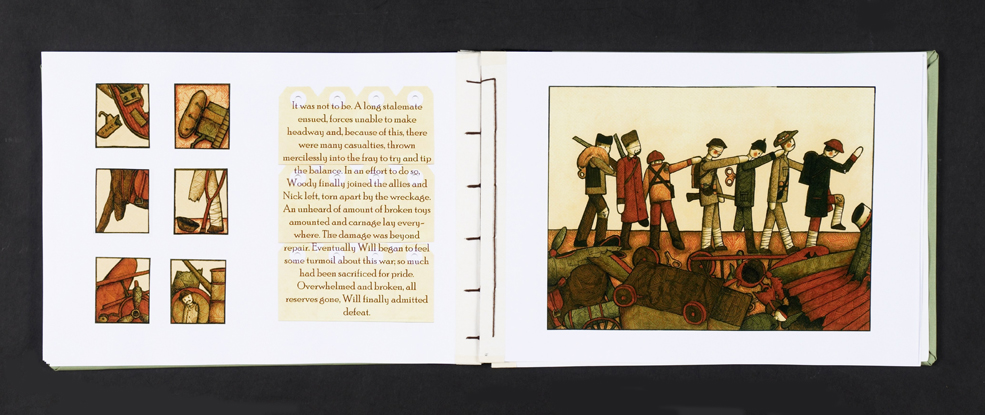 It was not to be. A long stalemate
ensued, forces unable to make
headway and, because of this, there
were many casualties, thrown
mercilessly into the fray to try and tip
the balance. In an effort to do so,
Woody finally joined the allies and
Nick left, torn apart by the wreckage.
An unheard of amount of broken toys
amounted and carnage lay every-
where. The damage was beyond
repair. Eventually Will began to feel
some turmoil about this war; so much
had been sacrificed for pride.
Overwhelmed and broken, all
reserves gone, Will finally admitted
defeat.